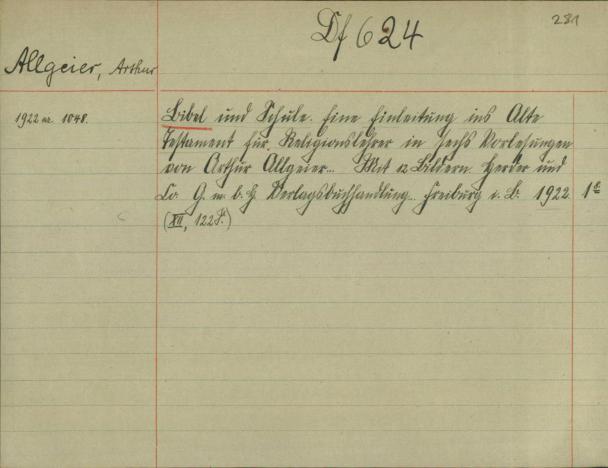 Df 624
281
Allgeier, Arthur
1922 nr. 1048.
Bibel und Schule. Eine Einleitung ins Alte
Testament für Religionslehrer in sechs Vorlesungen
von Arthur Allgeier... Mit 12 Bildern. Herder und
Co G. m. b. H. Verlagsbuchhandlung.. Freiburg i. B. 1922. 1 8°
(XII, 122 S.)